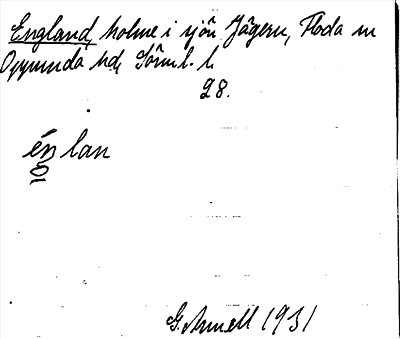 England, holme i sjön Jägern, Floda sn
Oppunda hd, Söml. l.
28.
éŋlan
G. Arnell 1931